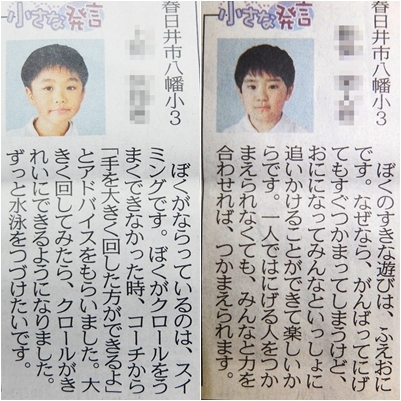 小さな発言
春日井市八幡小3
ぼくのすきな遊びは、ふえおに
です。なぜなら、がんばってにげ
てもすぐつかまってしまうけど、
おにになってみんなといっしょに
追いかけることができて楽しいか
らです。一人ではにげる人をつか
まえられなくても、みんなと力を
合わせれば、つかまえられます。
小さな発言
春日井市八幡小3
ぼくがならっているのは、スイ
ミングです。ぼくがクロールをう
まくできなかった時、コーチから
「手を大きく回した方ができるよ」
とアドバイスをもらいました。大
きく回してみたら、クロールがき
れいにできるようになりました。
ずっと水泳をつづけたいです。